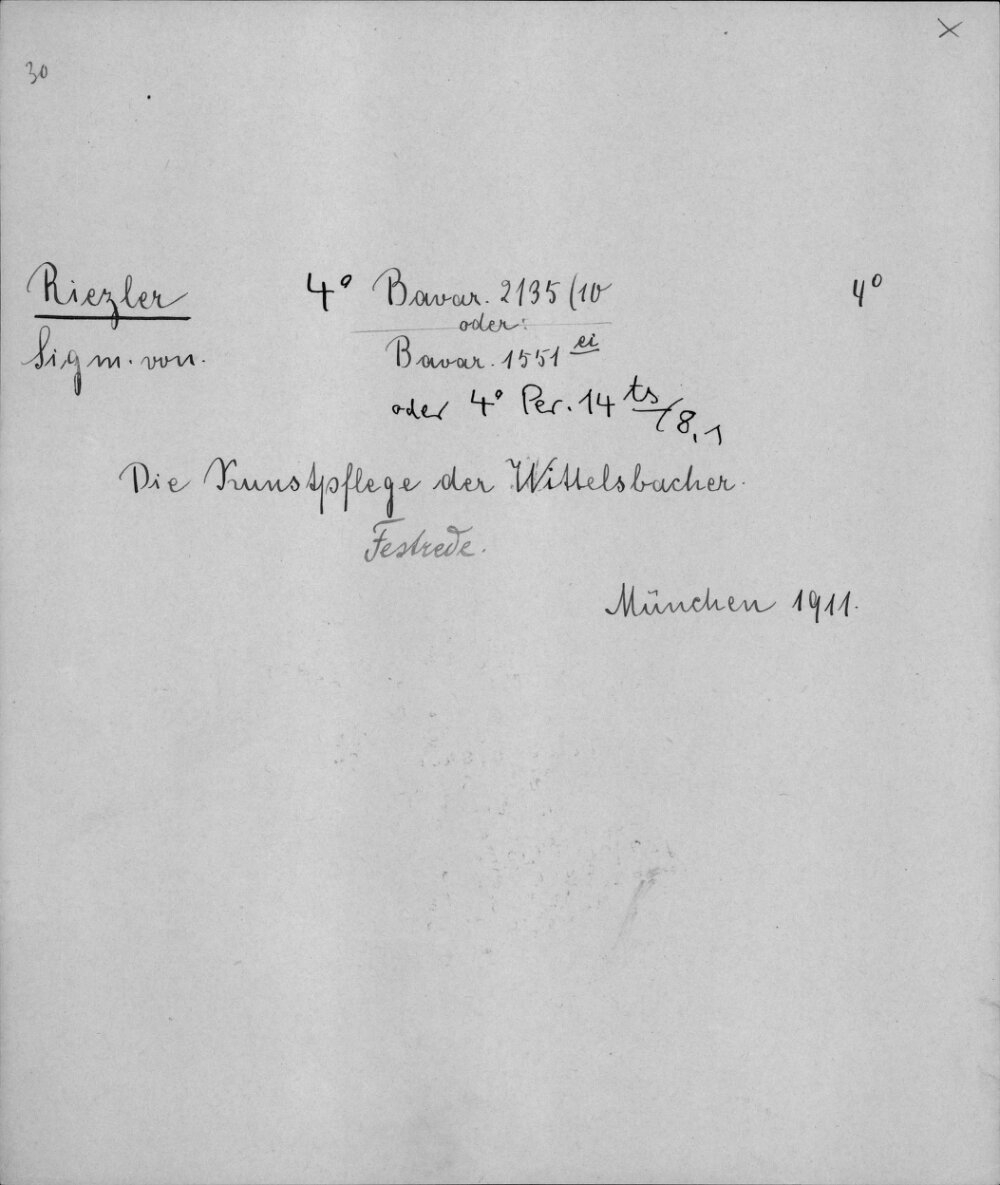 30
Riezler 4° Bavar. 2135 (10 4°
oder:
Sigm. von. Bavar. 1551 ei
oder 4° Per. 14 ts/8,1
Die Kunstpflege der Wittelsbacher.
Festrede.
München 1911.